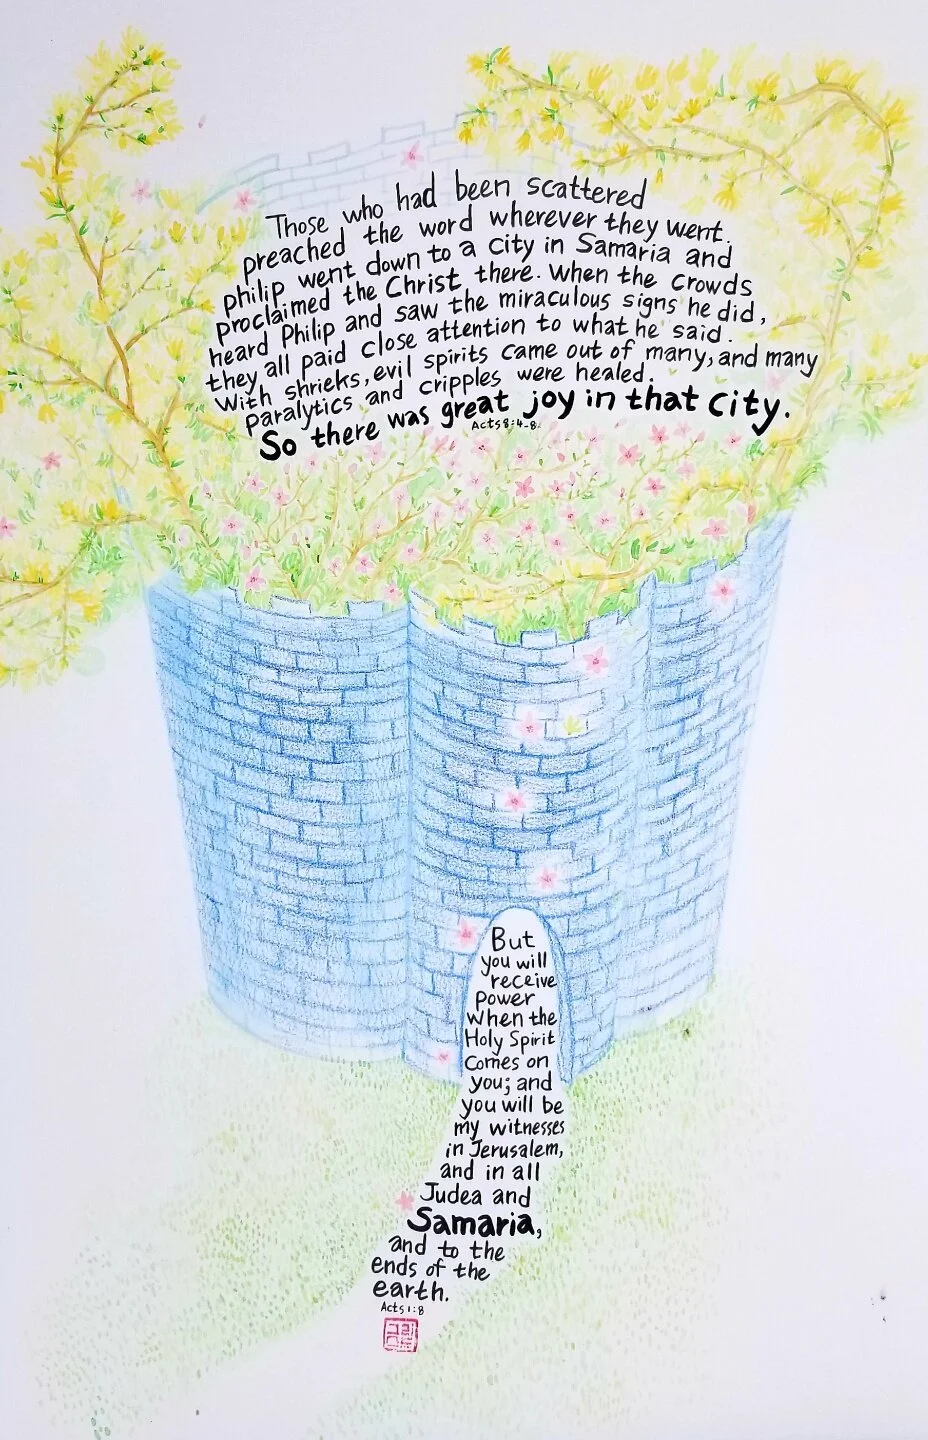 Those who had been scattered
preached the word wherever they went.
philip went down to a city in Samaria and
proclaimed the Christ there. When the crowds
heard Philip and saw the miraculous signs he did,
they all paid close attention to what he said.
With shrieks, evil spirits came out of many, and many
paralytics and cripples were healed.
So there was great joy in that city.
Acts 8:4-8
But
you will
receive
power
when the
Holy Spirit
comes on
you; and
you will be
my witnesses
in Jerusalem,
and in all
Judea and
Samaria,
and to the
ends of the
earth.
Acts 1:8